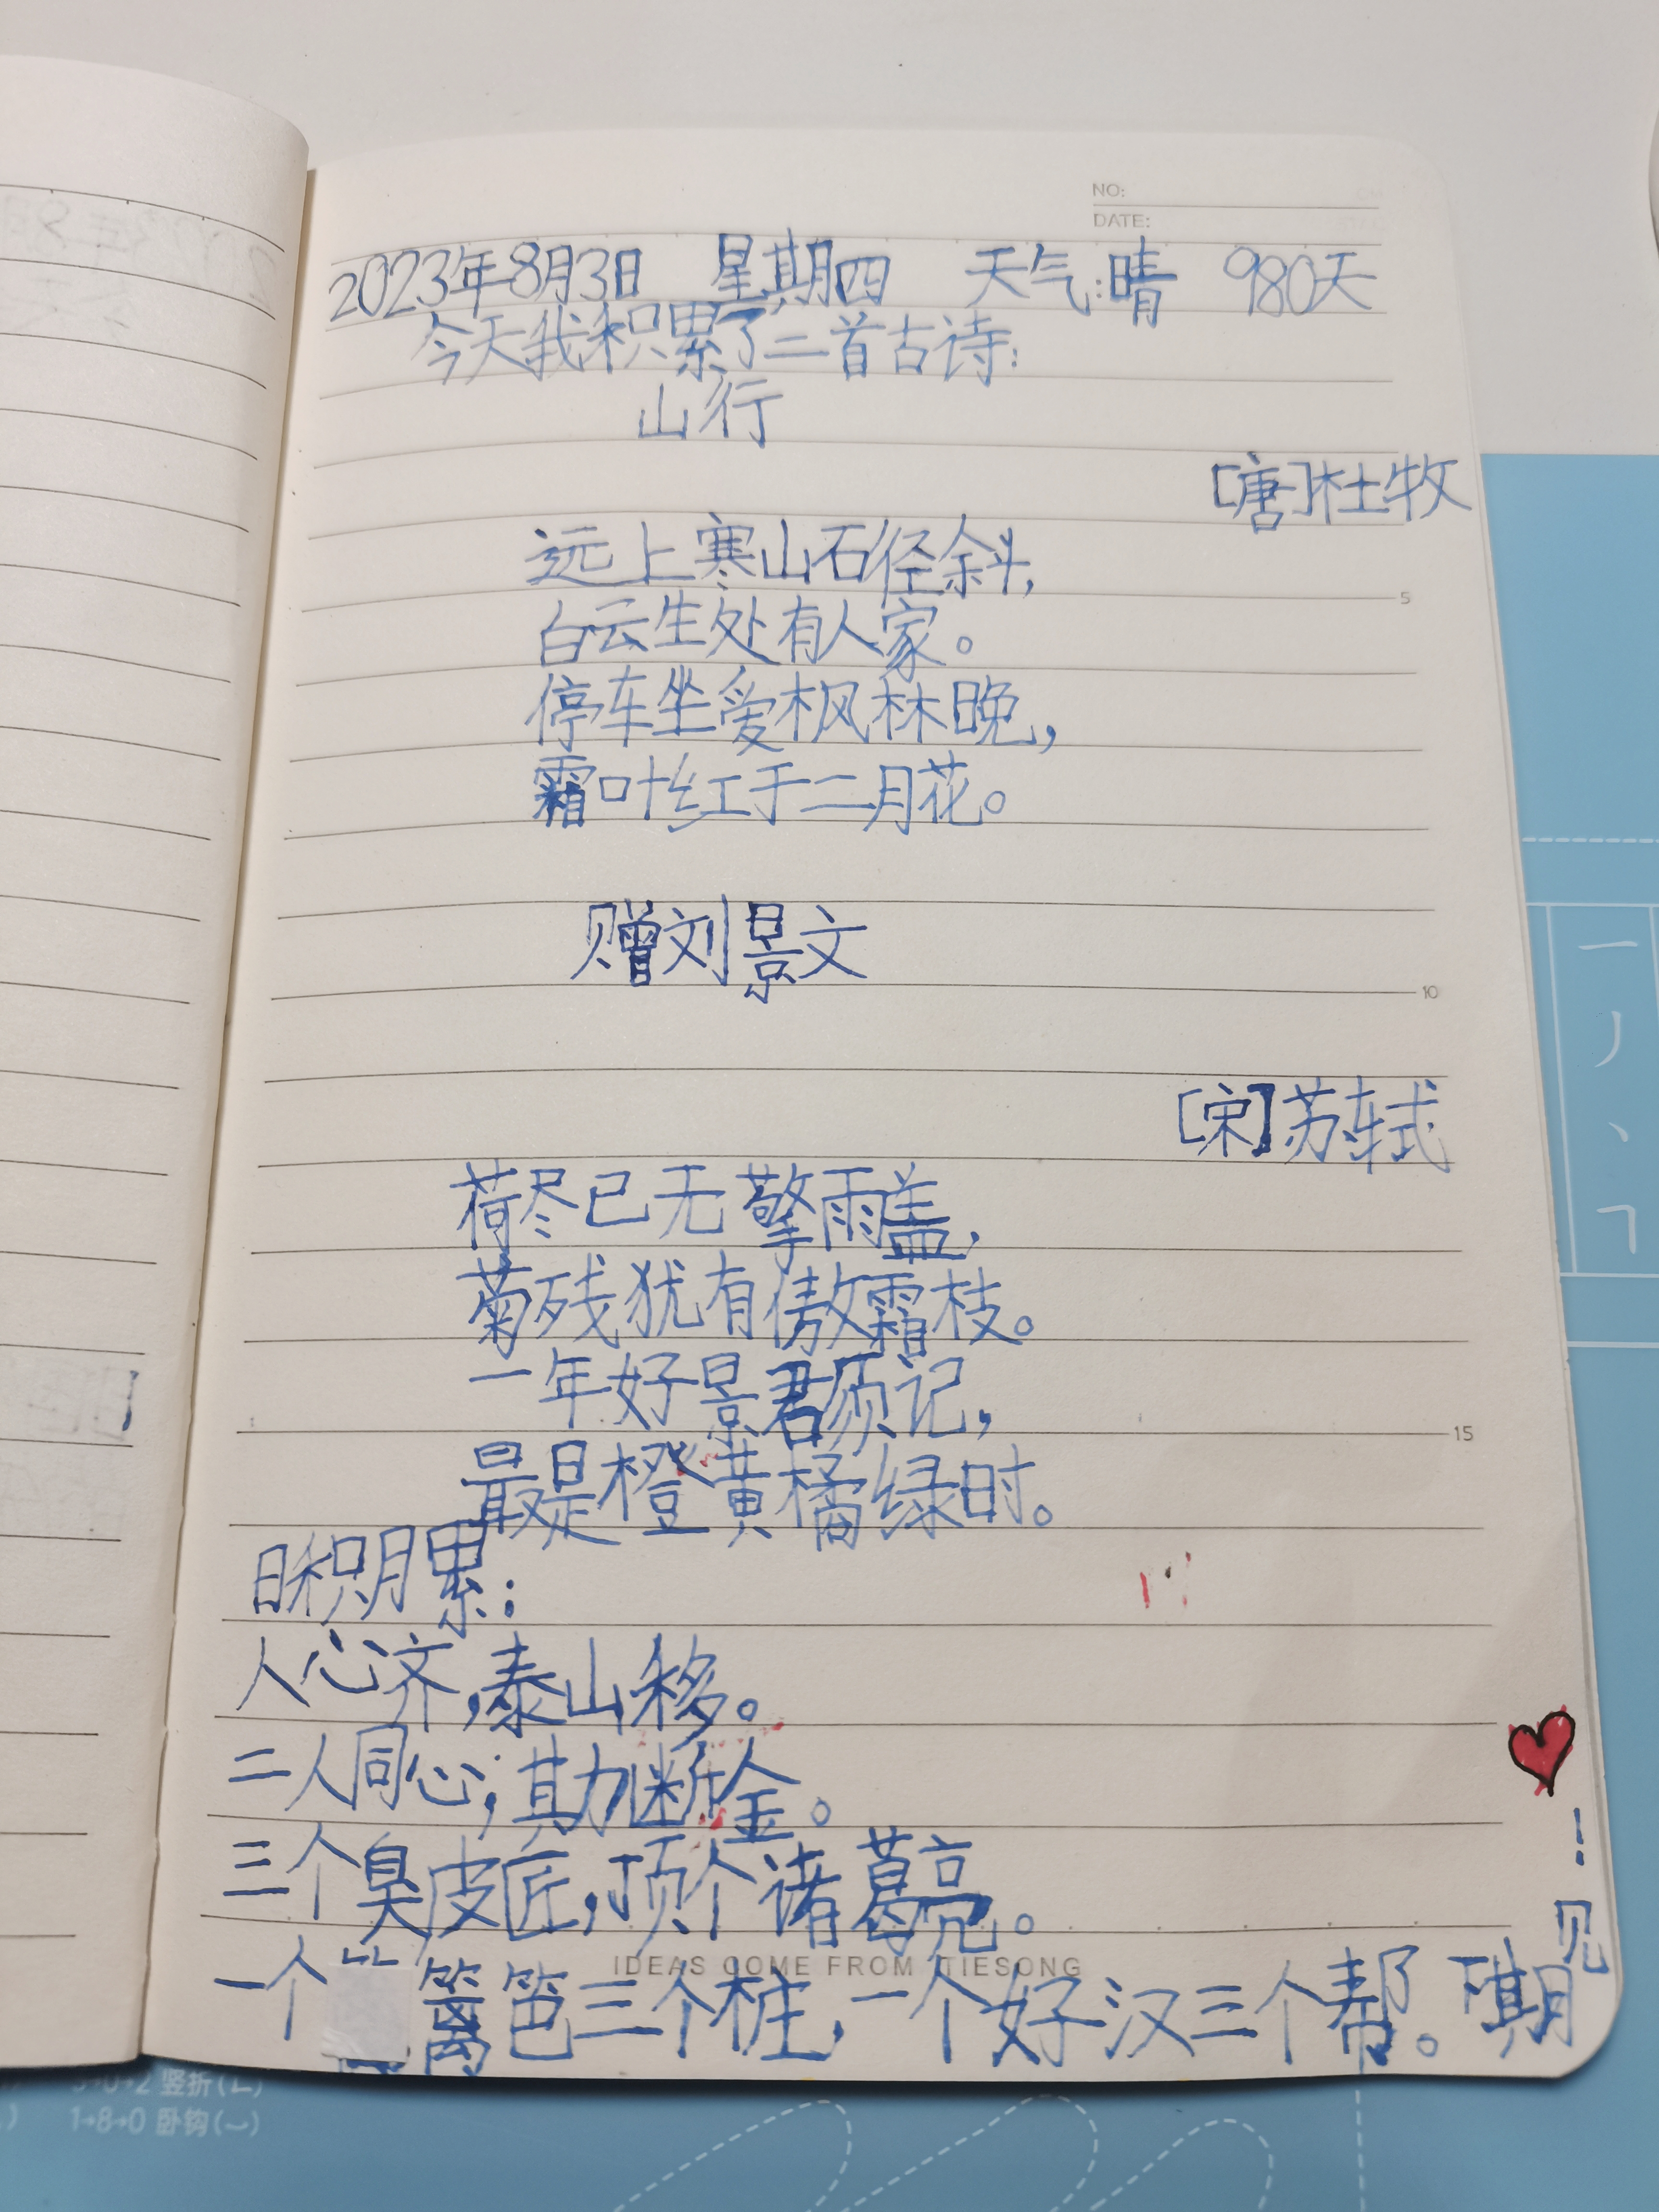 NO:
DATE:
2023年8月3日 星期四 天气:晴 980天
今天我积累了二首古诗:
山行
[唐]杜牧
远上寒山石径斜,
白云生处有人家。
停车坐爱枫林晚,
霜叶红于二月花。
赠刘景文
[宋]苏轼
荷尽已无擎雨盖,
菊残犹有傲霜枝。
一年好景君须记,
最是橙黄橘绿时。
日积月累:
人心齐,泰山移。
二人同心,其力断金。
三个臭皮匠,顶个诸葛亮。
IDEAS COME FROM TIESONG
一个篱笆三个桩,一个好汉三个帮。下期
见
!
5
10
15
一
丿
丶
㇕
5→0→2 竖折(ㄴ)
1→8→0 卧钩(㇃)